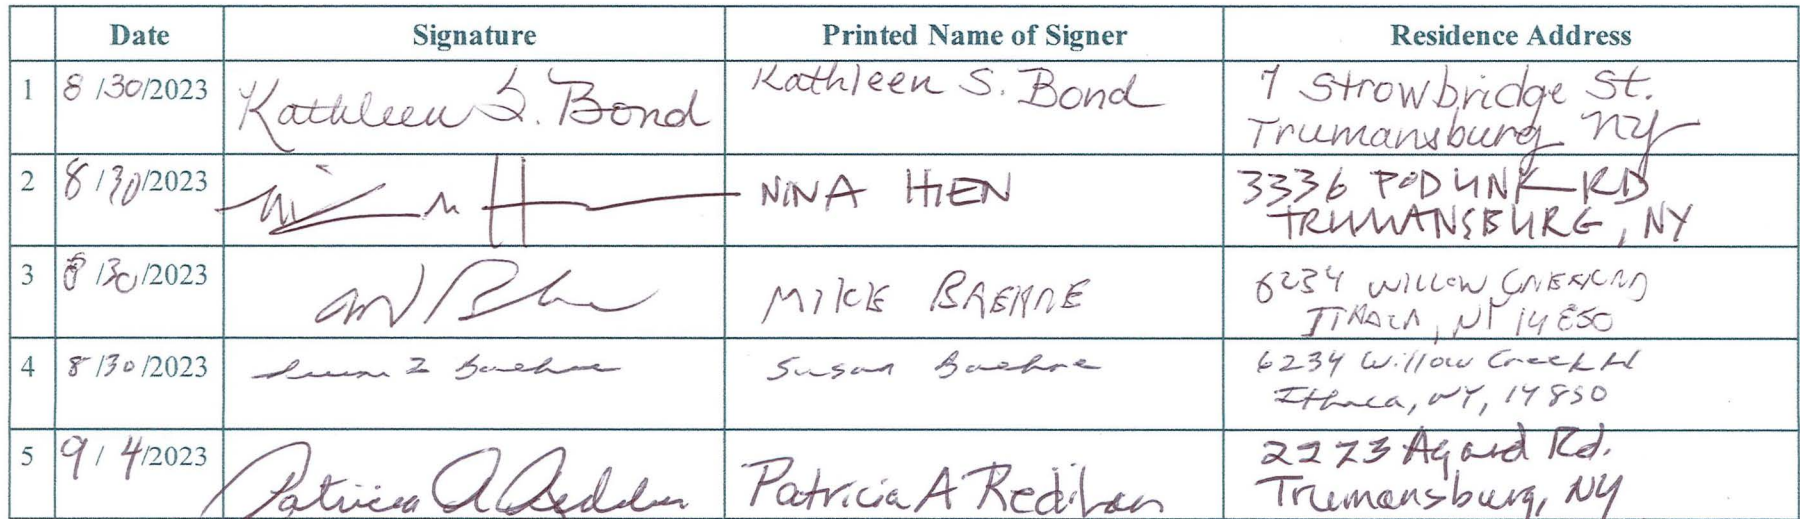 Date Signature Printed Name of Signer Residence Address
1 8/30/2023 Kathleen S. Bond Kathleen S. Bond 7 Strowbridge St.
Trumansburg NY
2 8/30/2023 NINA HIEN 3336 PODUNK RD
TRUMANSBURG, NY
3 8/30/2023 MIKE BAEHRE 6234 WILLOW CREEK RD
ITHACA, NY 14850
4 8/30/2023 Susan Baehre 6234 Willow Creek Rd
Ithaca, NY, 14850
5 9/4/2023 Patricia A Redihan 2273 Agard Rd.
Trumansburg, NY